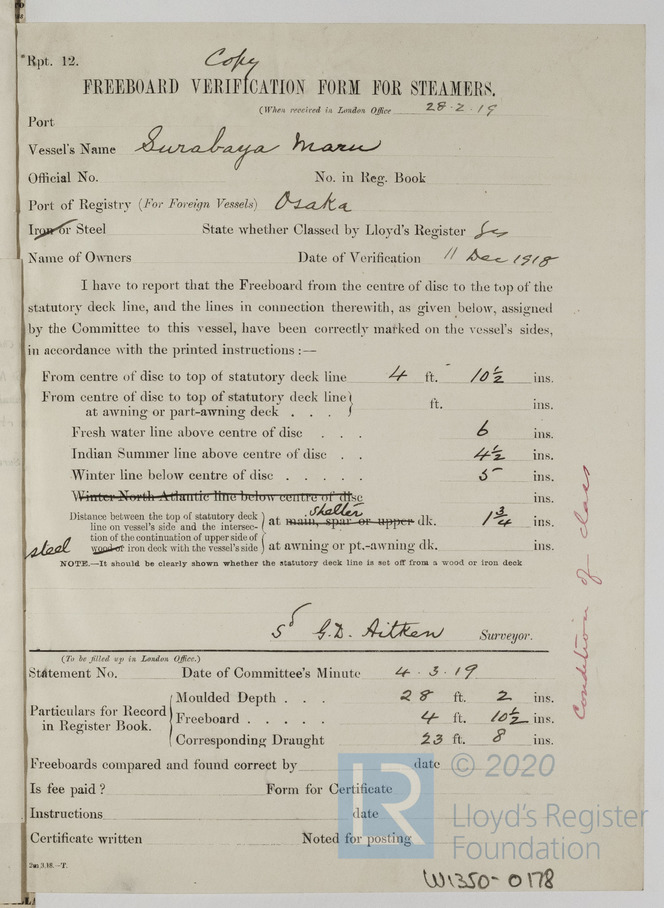 Rpt. 12.
Copy
FREEBOARD VERIFICATION FORM FOR STEAMERS.
(When received in London Office 28.2.19
Port
Vessel's Name Surabaya Maru
Official No. No. in Reg. Book
Port of Registry (For Foreign Vessels) Osaka
Iron or Steel State whether Classed by Lloyd's Register Yes
Name of Owners Date of Verification 11 Dec 1918
I have to report that the Freeboard from the centre of disc to the top of the
statutory deck line, and the lines in connection therewith, as given below, assigned
by the Committee to this vessel, have been correctly marked on the vessel's sides,
in accordance with the printed instructions :—
From centre of disc to top of statutory deck line 4 ft. 10½ ins.
From centre of disc to top of statutory deck line
at awning or part-awning deck . . . ft. ins.
Fresh water line above centre of disc . . . 6 ins.
Indian Summer line above centre of disc . . 4½ ins.
Winter line below centre of disc . . . . . 5 ins.
Winter North Atlantic line below centre of disc ins.
Distance between the top of statutory deck
line on vessel's side and the intersec-
tion of the continuation of upper side of
steel wood or iron deck with the vessel's side
shelter
at main, spar or upper dk. 1¾ ins.
at awning or pt.-awning dk. ins.
NOTE.—It should be clearly shown whether the statutory deck line is set off from a wood or iron deck
Condition of class
Sd G.D. Aitken Surveyor.
(To be filled up in London Office.)
Statement No. Date of Committee's Minute 4.3.19
Particulars for Record
in Register Book.
Moulded Depth . . . 28 ft. 2 ins.
Freeboard . . . . . 4 ft. 10½ ins.
Corresponding Draught 23 ft. 8 ins.
Freeboards compared and found correct by date
Is fee paid ? Form for Certificate
Instructions date
Certificate written Noted for posting
2m,3,18.—T.
© 2020
LR
Lloyd's Register
Foundation
W1350-0178